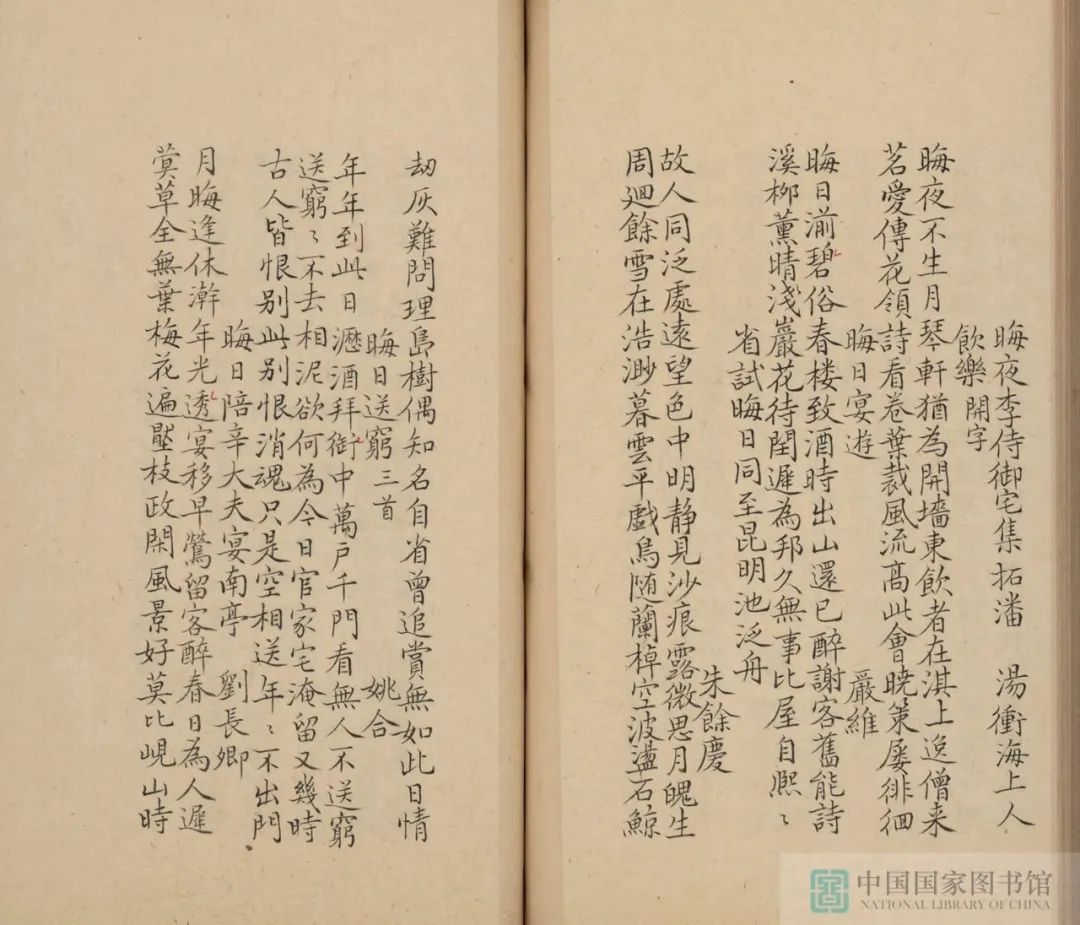 晦夜李侍御宅集招潘　湯衝海上人
飲樂開字
晦夜不生月琴軒猶為開墻東飲者在淇上逸僧来
茗愛傳花領詩看卷葉裁風流高此會曉策屡徘徊
晦日宴遊　嚴維
晦日湔碧俗春楼致酒時出山還已醉謝客舊能詩
溪柳薰晴浅巖花待閏遲為邦久無事比屋自熈〻
省試晦日同至昆明池泛舟
朱餘慶
故人同泛處遠望色中明静見沙痕露微思月魄生
周廻餘雪在浩渺暮雲平戯鳥随蘭棹空波盪石鯨
劫灰難問理島樹偶知名自省曾追賞無如此日情
晦日送窮三首　姚合
年年到此日瀝酒拜街中萬戸千門看無人不送窮
送窮〻不去相泥欲何為今日官家宅淹留又幾時
古人皆恨别此别恨消魂只是空相送年〻不出門
晦日陪辛大夫宴南亭　劉長卿
月晦逢休澣年光透宴移早鶯留客醉春日為人遲
蓂草全無葉梅花遍壓枝政閑風景好莫比峴山時
中国国家图书馆
NATIONAL LIBRARY OF CHINA